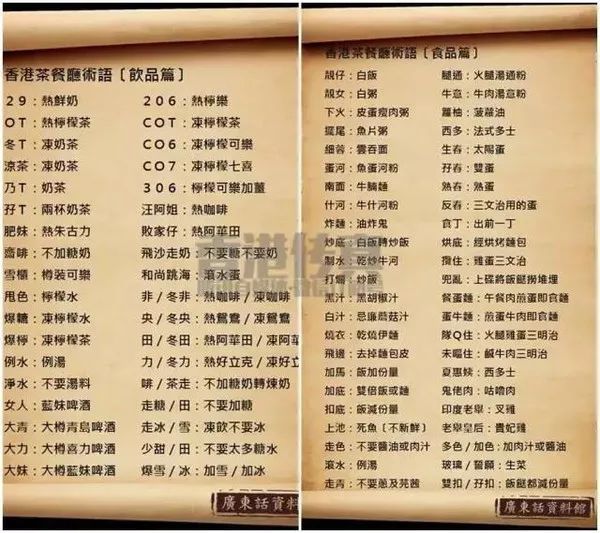 香港茶餐廳術語〔飲品篇〕
29：熱鮮奶 206：熱檸樂
OT：熱檸檬茶 COT：凍檸檬茶
冬T：凍奶茶 CO6：凍檸檬可樂
涼茶：凍奶茶 CO7：凍檸檬七喜
乃T：奶茶 306：檸檬可樂加薑
孖T：兩杯奶茶 汪阿姐：熱咖啡
肥妹：熱朱古力 敗家仔：熱阿華田
齋啡：不加糖奶 飛沙走奶：不要糖不要奶
雪櫃：樽裝可樂 和尚跳海：滾水蛋
甩色：檸檬水 非/冬非：熱咖啡/凍咖啡
爆糖：凍檸檬水 央/冬央：熱鴛鴦/凍鴛鴦
爆檸：凍檸檬茶 田/冬田：熱阿華田/凍阿華田
例水：例湯 力/冬力：熱好立克/凍好立克
淨水：不要湯料 啡/茶走：不加糖奶轉煉奶
女人：藍妹啤酒 走糖/田：不要加糖
大青：大樽青島啤酒 走冰/雪：凍飲不要冰
大力：大樽喜力啤酒 少甜/田：不要太多糖水
大妹：大樽藍妹啤酒 爆雪/冰：加雪/加冰
廣東話資料館
香港茶餐廳術語〔食品篇〕
靚仔：白飯 腿通：火腿湯通粉
靚女：白粥 牛意：牛肉湯意粉
下火：皮蛋瘦肉粥 蘿柚：菠蘿油
擺尾：魚片粥 西多：法式多士
細蓉：雲吞面 生春：太陽蛋
蛋河：魚蛋河粉 孖春：雙蛋
南面：牛腩麵 熟春：熟蛋
什河：牛什河粉 反春：三文治用的蛋
炸麵：油炸鬼 食丁：出前一丁
炒白：白飯轉炒飯 烘底：經烘烤麵包
制水：乾炒牛河 攬住：雞蛋三文治
打爛：炒飯 兜亂：上碟將飯餸撈埋
黑汁：黑胡椒汁 餐蛋麵：午餐肉煎蛋即食麵
白汁：忌廉蘑菇汁 蛋牛麵：煎蛋牛肉即食麵
燒衣：乾燒伊麵 隊Q住：火腿雞蛋三明治
飛邊：去掉麵包皮 未嘔住：鹹牛肉三明治
加馬：飯加份量 夏惠姨：西多士
加底：雙倍飯或麵 鬼佬肉：咕嚕肉
扣底：飯減份量 印度老舉：叉雞
上池：死魚〔不新鮮〕 老舉皇后：貴妃雞
走色：不要醬油或肉汁 多色/加色：加肉汁或醬油
滾水：例湯 玻璃/誓願：生菜
走青：不要蔥及芫茜 雙扣/孖扣：飯餸都減份量
廣東話資料館